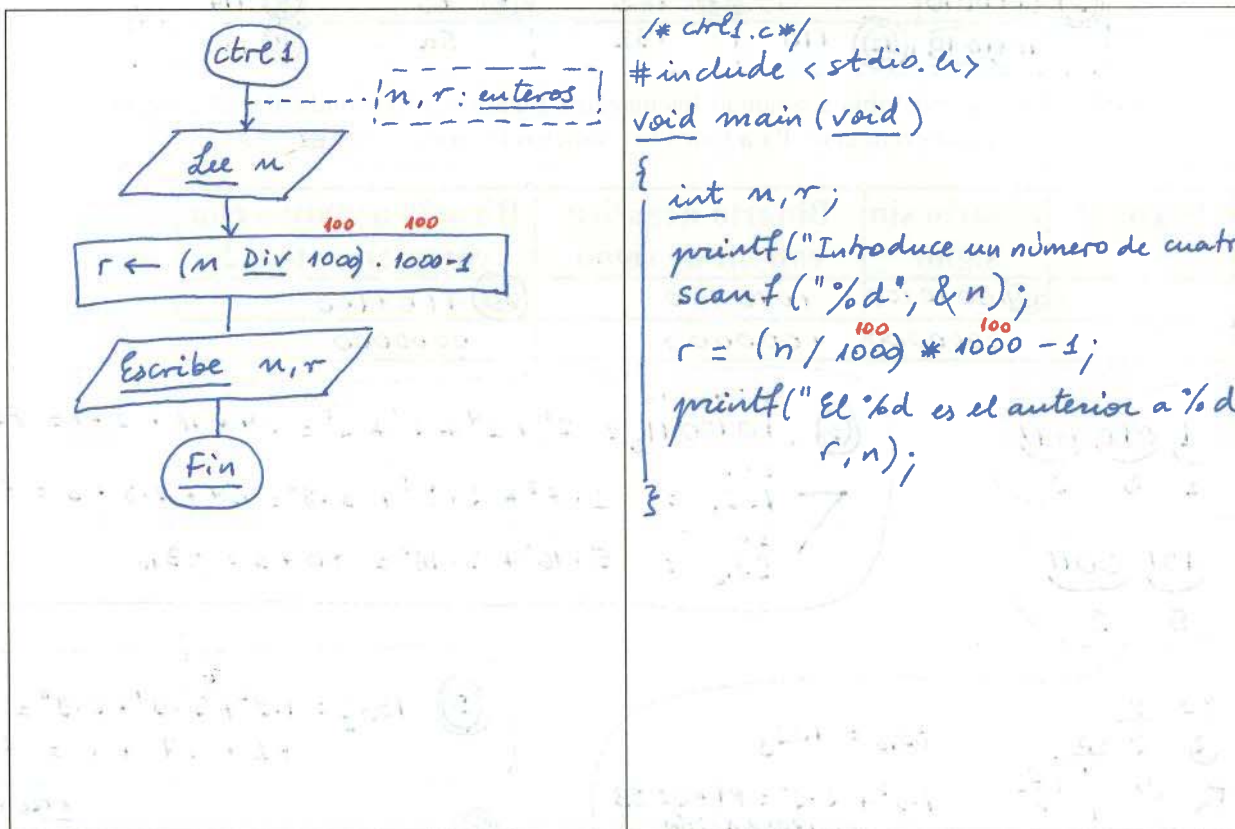 ctrl 1
n, r: enteros
Lee n
100 100
r ← (n Div 1000) 1000-1
Escribe n, r
Fin
/* ctrl1.c */
#include <stdio.h>
void main (void)
{
int n, r;
printf("Introduce un número de cuatr
scanf("%d", &n);
100 100
r = (n / 1000) * 1000 - 1;
printf("El %d es el anterior a %d
r, n);
}